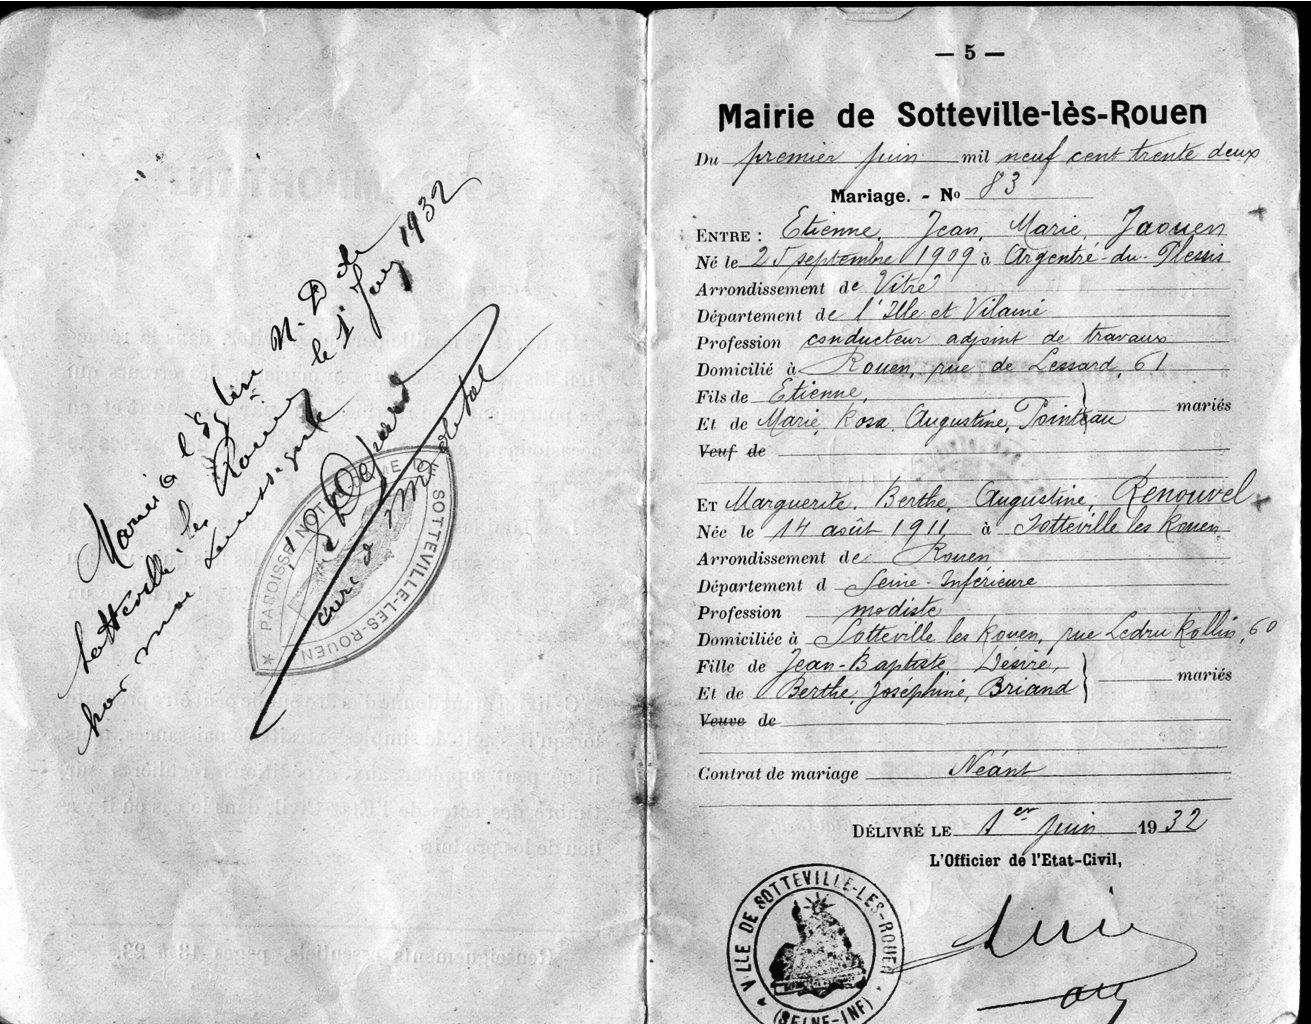 Marié à l'Église N. D. de
Sotteville les Rouen le 1er Juin 1932
par nous soussigné
curé de
PAROISSE NOTRE DAME DE SOTTEVILLE-LES-ROUEN
— 5 —
Mairie de Sotteville-lès-Rouen
Du premier juin mil neuf cent trente deux
Mariage. - No 83
ENTRE : Etienne, Jean, Marie, Jaouen
Né le 25 septembre 1909 à Argentré-du-Plessis
Arrondissement de Vitré
Département de l'Ille et Vilaine
Profession conducteur adjoint de travaux
Domicilié à Rouen, rue de Lessard, 61
Fils de Etienne,
Et de Marie, Rosa, Augustine, Pointeau
mariés
Veuf de
ET Marguerite, Berthe, Augustine, Renouvel
Née le 14 août 1911 à Sotteville les Rouen
Arrondissement de Rouen
Département d Seine-Inférieure
Profession modiste
Domiciliée à Sotteville les Rouen, rue Ledru Rollin, 60
Fille de Jean-Baptiste, Désiré,
Et de Berthe, Joséphine, Briand
mariés
Veuve de
Contrat de mariage Néant
DÉLIVRÉ LE 1er juin 1932
L'Officier de l'Etat-Civil,
VILLE DE SOTTEVILLE-LES-ROUEN
(SEINE-INF)